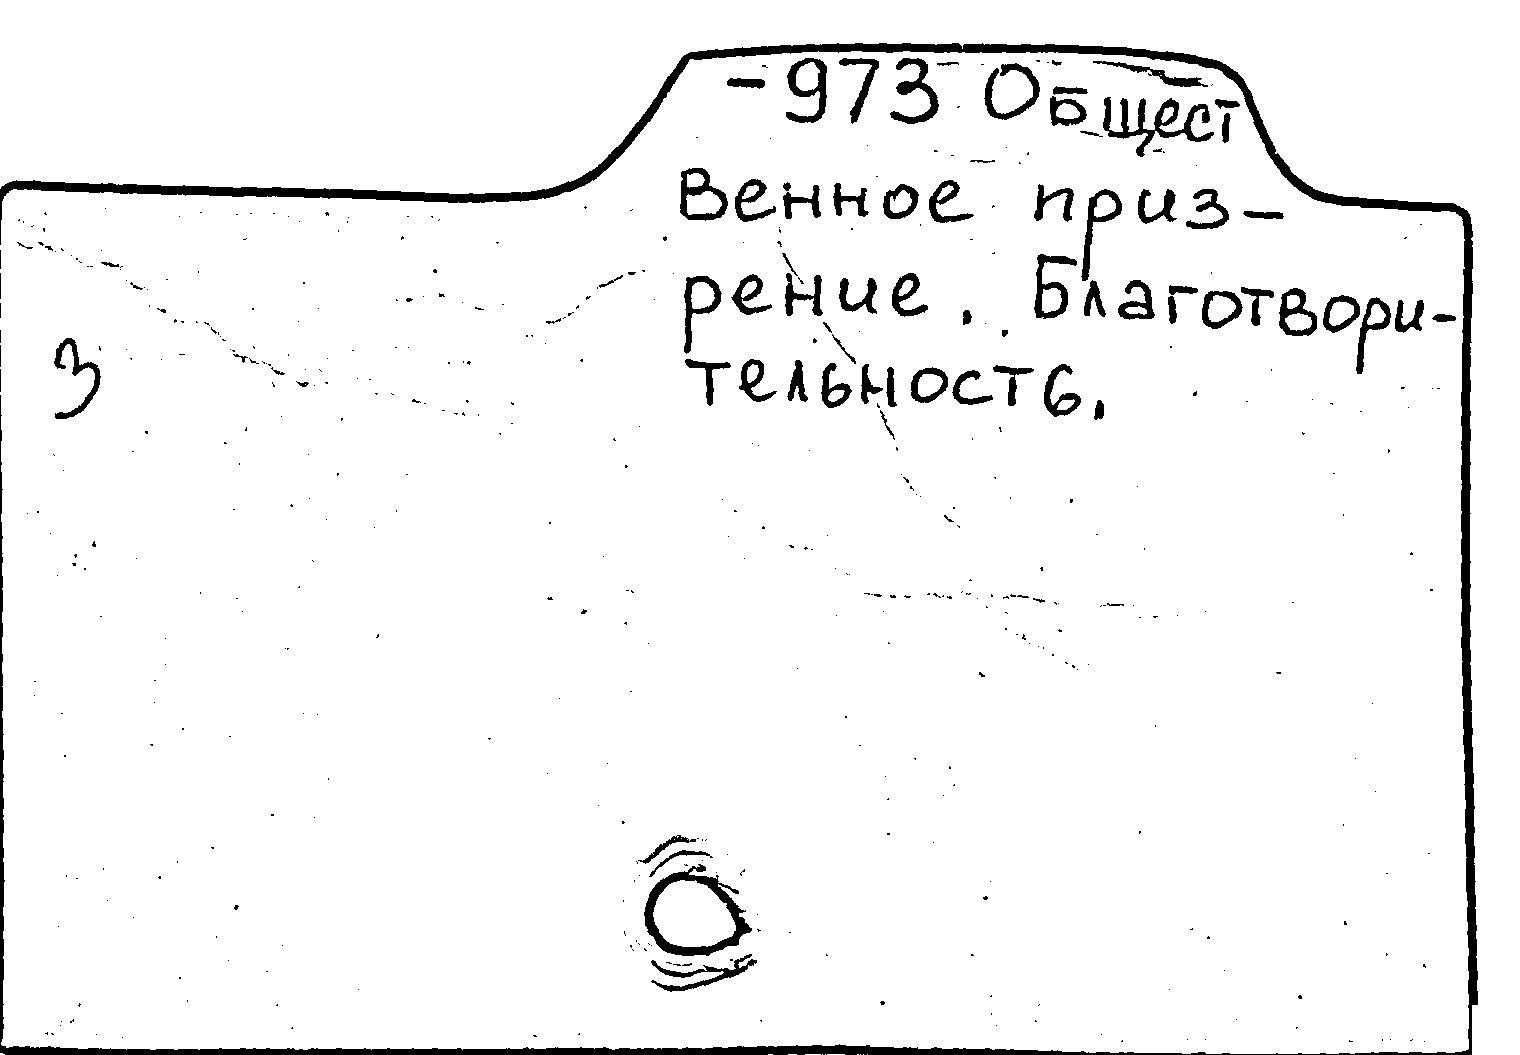 -973 Общест
венное приз-
рение. Благотвори-
тельность.
3